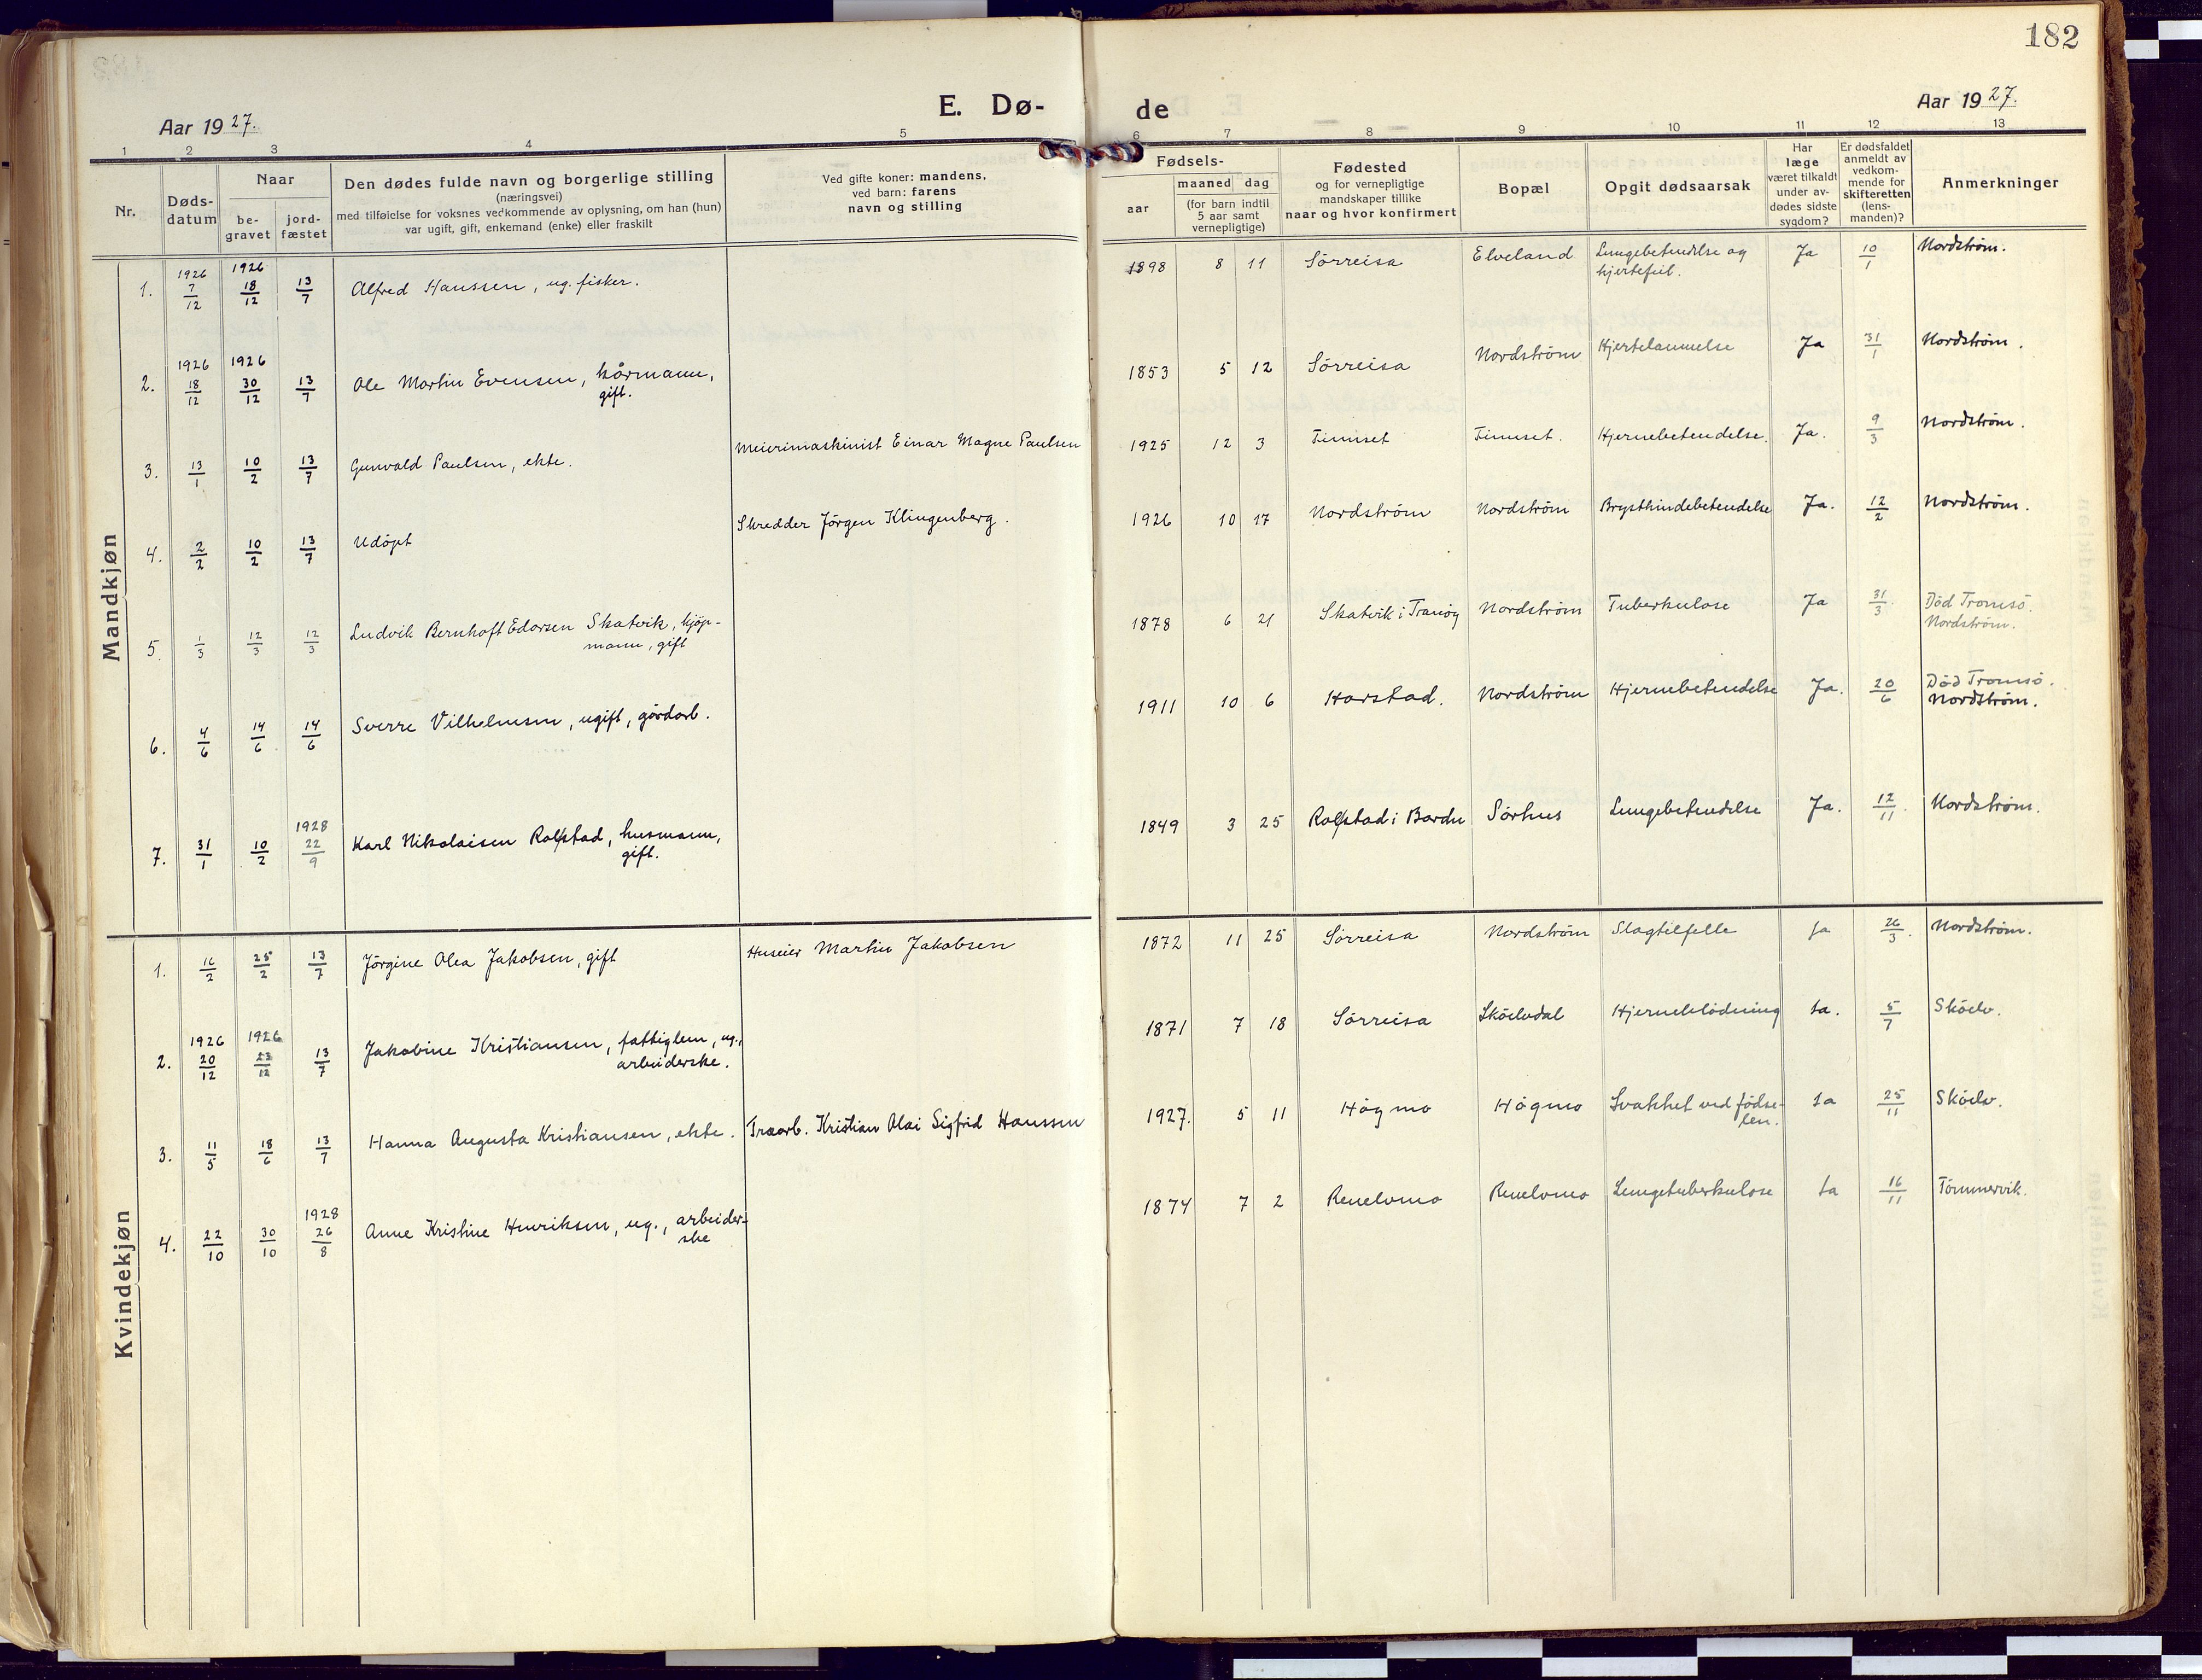 182
E. Dø- de
Aar 1927.
Aar 1927.
1 2 3 4 5 6 7 8 9 10 11 12 13
Nr.
Døds-
datum
Naar
be-
gravet
jord-
fæstet
Den dødes fulde navn og borgerlige stilling
(næringsvei)
med tilføielse for voksnes vedkommende av oplysning, om han (hun)
var ugift, gift, enkemand (enke) eller fraskilt
Ved gifte koner: mandens,
ved barn: farens
navn og stilling
Fødsels-
aar
maaned dag
(for barn indtil
5 aar samt
vernepligtige)
Fødested
og for vernepligtige
mandskaper tillike
naar og hvor konfirmert
Bopæl
Opgit dødsaarsak
Har
læge
været tilkaldt
under av-
dødes sidste
sygdom?
Er dødsfaldet
anmeldt av
vedkom-
mende for
skifteretten
(lens-
manden)?
Anmerkninger
Mandkjøn
1. 1926 7/12 1926 18/12 13/7 Alfred Hanssen, ug. fisker. 1898 8 11 Sörreisa Elveland Lungebetendelse og Ja 10/1 Nordström.
hjertefeil.
2. 1926 18/12 1926 30/12 13/7 Ole Martin Evensen, kårmann, 1853 5 12 Sörreisa Nordström Hjertelammelse Ja 31/1 Nordström.
gift.
3. 13/1 10/2 13/7 Gunvald Paulsen, ekte. Meierimaskinist Einar Magne Paulsen 1925 12 3 Finnset Finnset. Hjernebetendelse. Ja. 9/3 Nordström.
4. 2/2 10/2 13/7 Udöpt Skredder Jörgen Klingenberg. 1926 10 17 Nordström Nordström Brysthindebetendelse Ja. 12/2 Nordström.
5. 1/3 12/3 12/3 Ludvik Bernhoft Edorsen Skatvik, kjöp- 1878 6 21 Skatvik i Tranöy Nordström Tuberkulose Ja 31/3 Död Tromsö.
mann, gift Nordström.
6. 4/6 14/6 14/6 Sverre Vilhelmsen, ugift, gårdarb. 1911 10 6 Harstad. Nordström Hjernebetendelse Ja. 20/6 Död Tromsö.
Nordström.
7. 31/1 10/2 1928 22/9 Karl Nikolaisen Rolfstad, husmann, 1849 3 25 Rolfstad i Bardu Sörhus Lungebetendelse Ja. 12/11. Nordström.
gift.
Kvindekjøn
1. 16/2 25/2 13/7 Jörgine Olea Jakobsen, gift Huseier Martin Jakobsen 1872 11 25 Sörreisa Nordström Slagtilfelle Ja 26/3. Nordström.
2. 1926 20/12 1926 23/12 13/7 Jakobine Kristiansen, fattiglem, ug., 1871 7 18 Sörreisa Sköelvdal Hjerneblödning Ja. 5/7 Sköelv.
arbeiderske.
3. 11/5 18/6 13/7 Hanna Augusta Kristiansen, ekte. Træarb. Kristian Olai Sigfrid Hanssen 1927. 5 11 Högmo Högmo Svakhet ved födse- Ja 25/11 Sköelv.
len.
4. 22/10 30/10 1928 26/8 Anne Kristine Henriksen, ug., arbeider- 1874 7 2 Renelvmo Renelvmo Lungetuberkulose Ja 16/11 Tömmervik.
ske